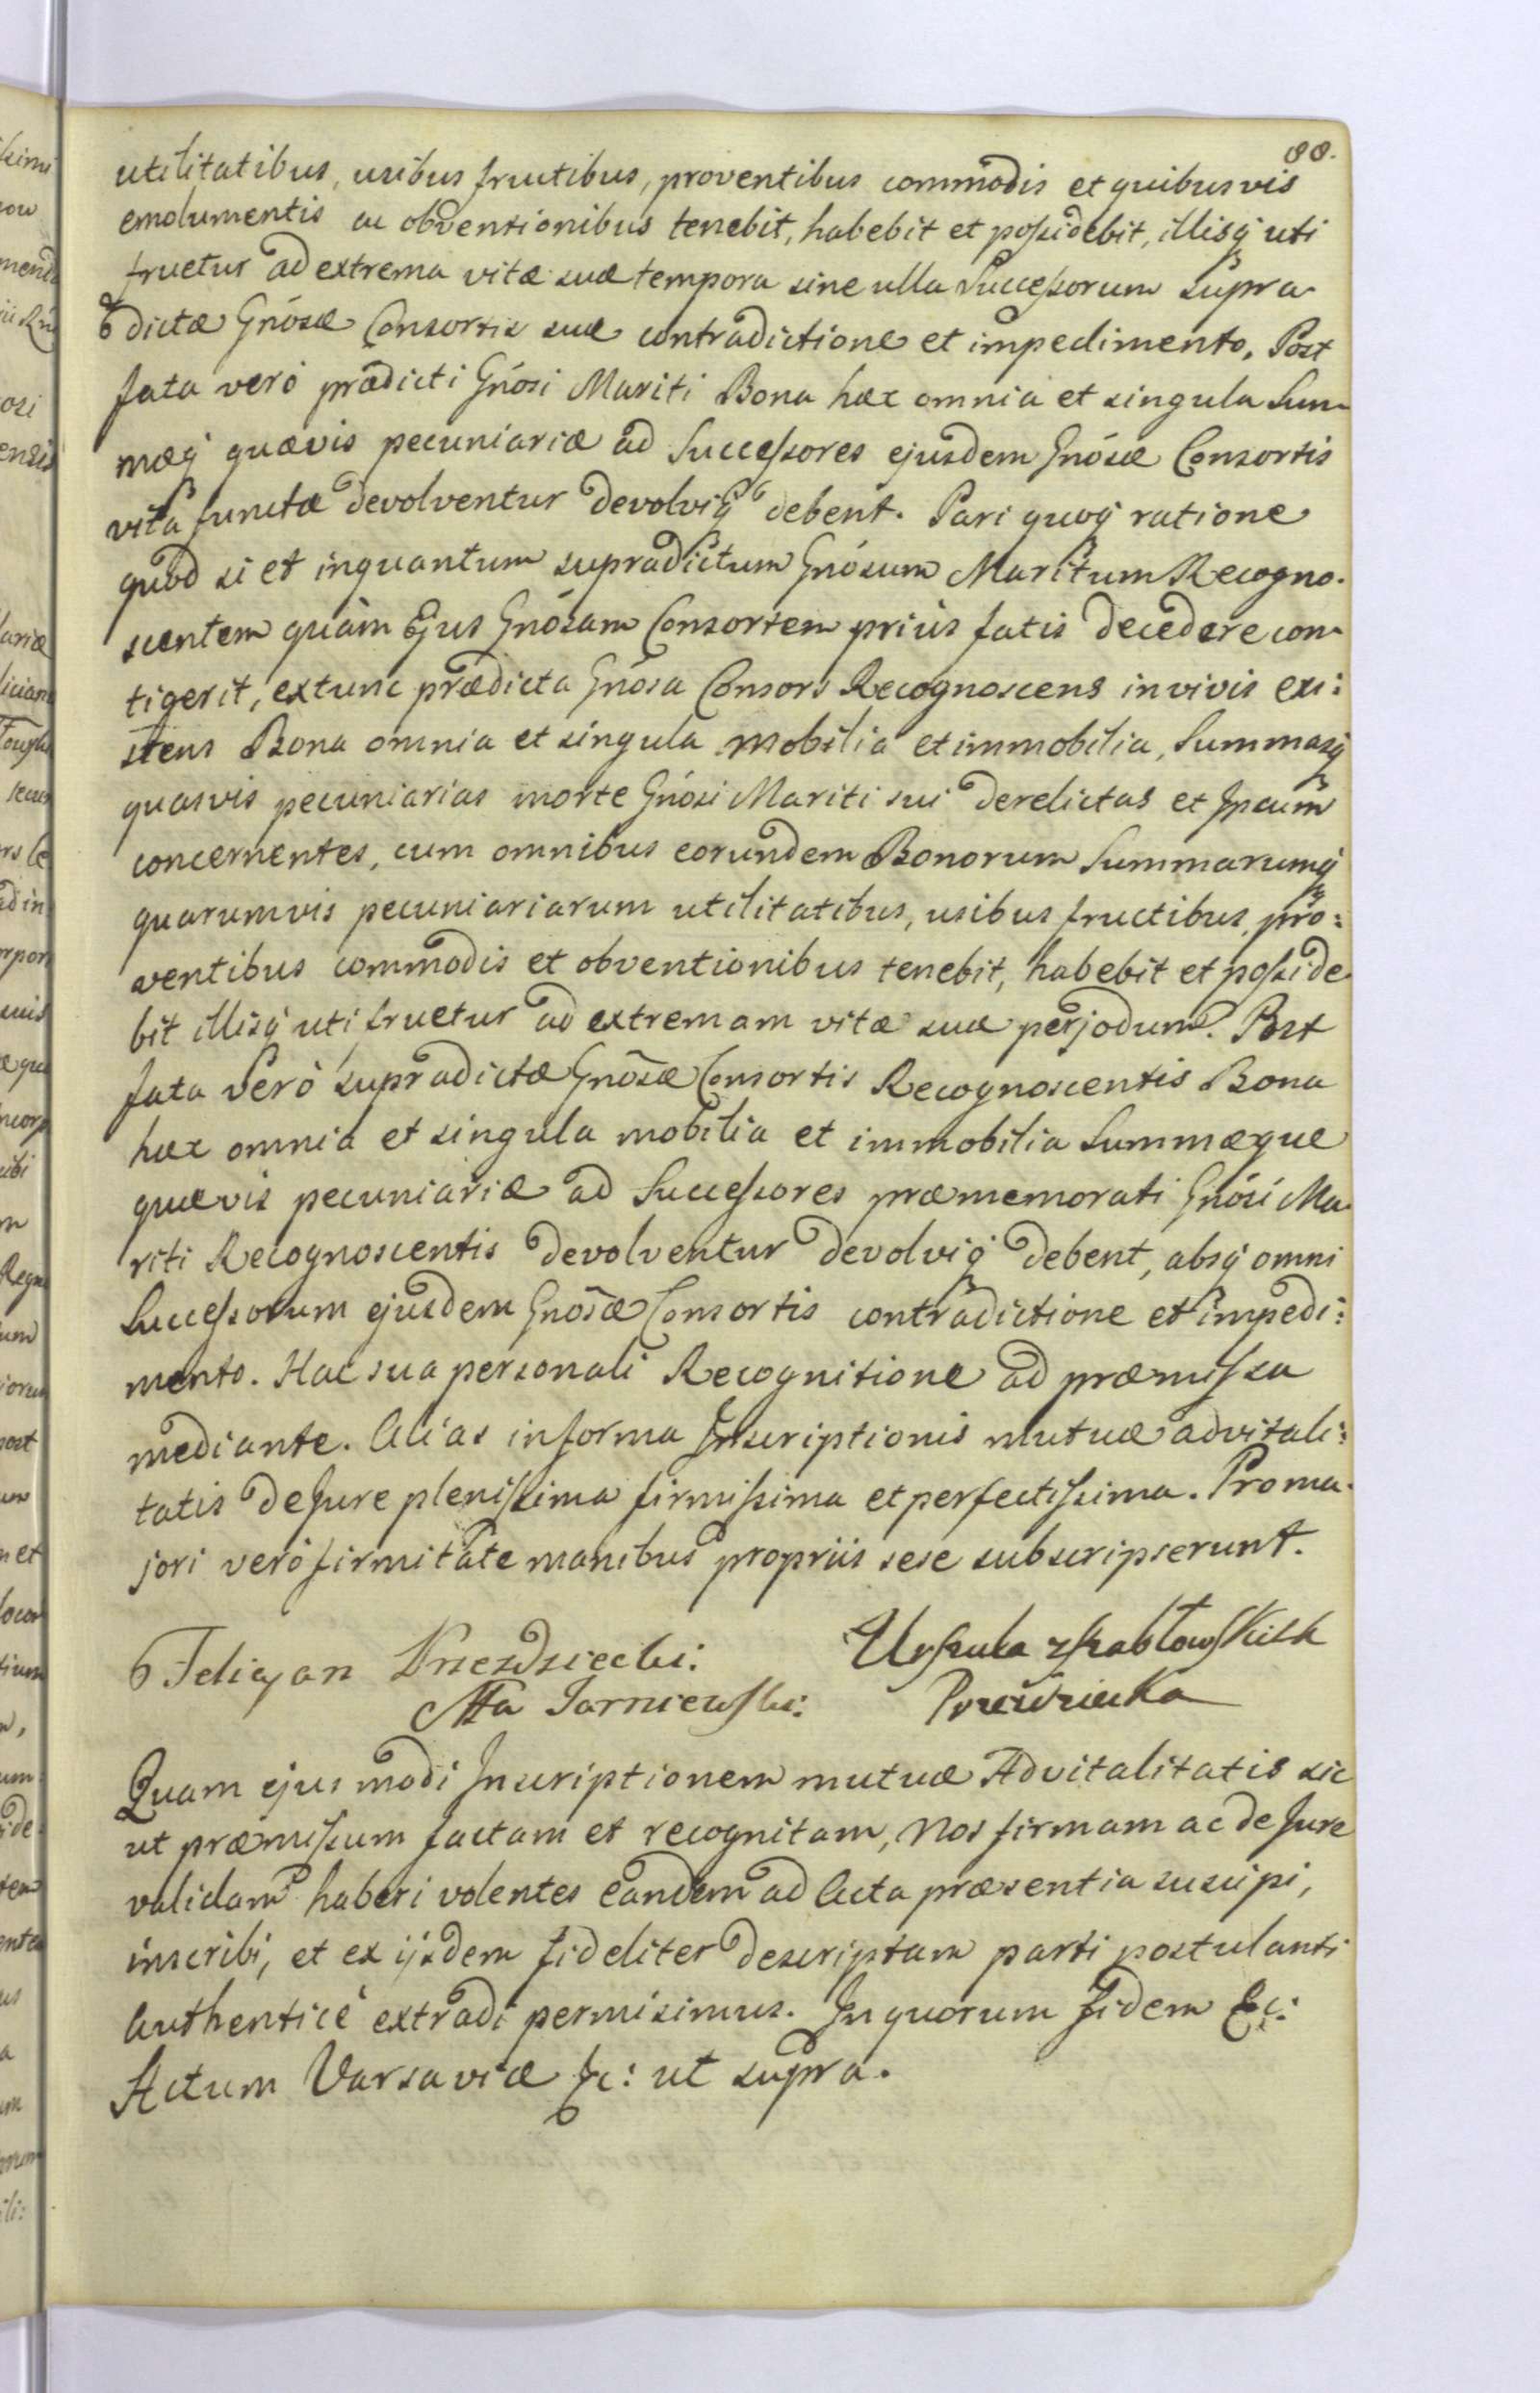 88.
utilitatibus, usibus fructibus, proventibus commodis et quibusvis
emolumentis ac obventionibus tenebit, habebit et possidebit, illisq́ uti
fruetur ad extrema vitæ suæ tempora sine ulla Successorum supra
dictæ Gnósæ Consortis suæ contradictione et impedimento, Post
fata verò prædicti Gnósi Mariti Bona hæc omnia et singula Sum
mæq́ quævis pecuniariæ ad Successores ejusdem Gnósæ Consortis
vitâ functæ devolventur devolviq́ debent. Pari quoq́ ratione
quòd si et inquantum supradictum Gnósum Maritum Recogno.
scentem quàm Ejus Gnósam Consortem prius fatis decedere con
tigerit, extunc prædicta Gnósa Consors Recognoscens in vivis exi:
stens Bona omnia et singula mobilia et immobilia, Summasq́
quasvis pecuniarias morte Gnósi Mariti sui derelictas et Ipsum
concernentes, cum omnibus eorundem Bonorum Summarumq́
quarumvis pecuniariarum utilitatibus, usibus fructibus, pro:
ventibus commodis et obventionibus tenebit, habebit et posside
bit illisq́ uti fruetur ad extremam vitæ suæ perjodum. Post
fata verò supradictæ Gnōsæ Consortis Recognoscentis Bona
hæc omnia et singula mobilia et immobilia Summæque
quævis pecuniariæ ad Successores præmemorati Gnósi Ma
riti Recognoscentis devolventur devolviq́ debent, absq́ omni
Successorum ejusdem Gnōsæ Consortis contradictione et impedi:
mento. Hac sua personali Recognitione ad præmissa
mediante. Alias in forma Inscriptionis mutuæ advitali:
tatis de Jure plenissima firmissima et perfectissima. Pro ma.
jori verò firmitate manibus propriis sese subscripserunt.
Felicyan Drzezdziecki.
Urszula z Szabłowskich
Jarniewski:
Quam ejusmodi Inscriptionem mutuæ Advitalitatis sic
ut præmissum factam et recognitam, Nos firmam ac de Jure
validam haberi volentes eandem ad Acta præsentia suscipi,
inscribi, et ex ijsdem fideliter descriptam parti postulanti
authenticè extradi permisimus. In quorum fidem &c:
Actum Varsaviæ &c: ut supra.